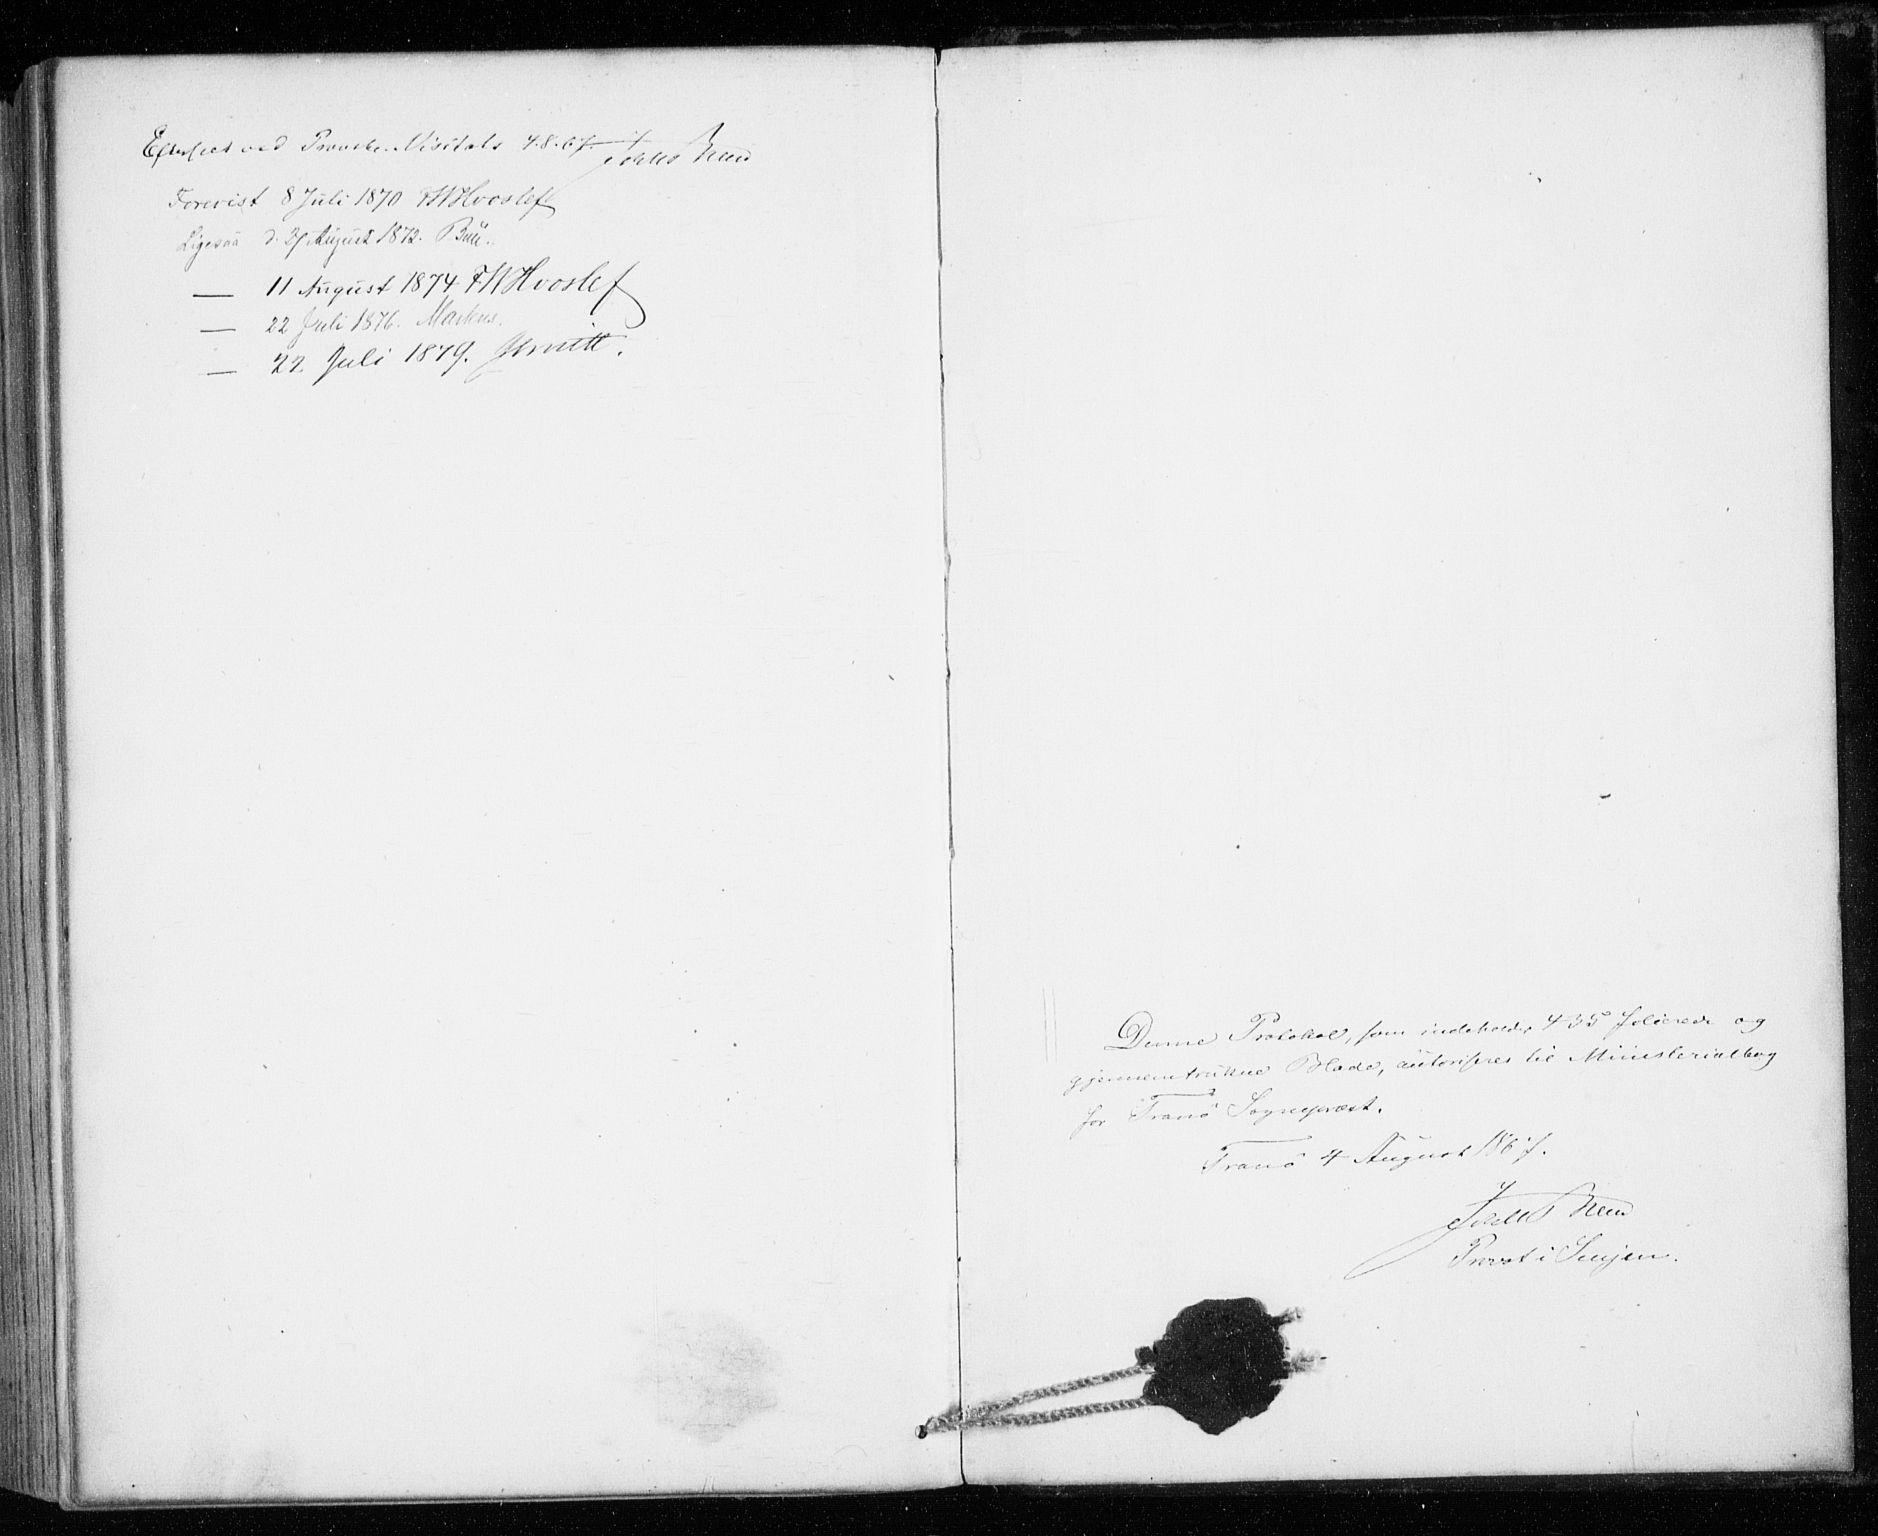 Efterseet ved Provste-Visitats 4.8.67.
Forevist 8 Juli 1870 FWHvoslef
Ligesaa d. 27 August 1872.
— 11 August 1874 FWHvoslef
— 22 Juli 1876. Markus.
— 22 Juli 1879. Smitt.
Denne Protokol, som indeholder 435 folierede og
gjennemtrukne Blade, autoriseres til Ministerialbog
for Tranö Sognepræst.
Tranö 4 August 1867.
Provst i Senjen.